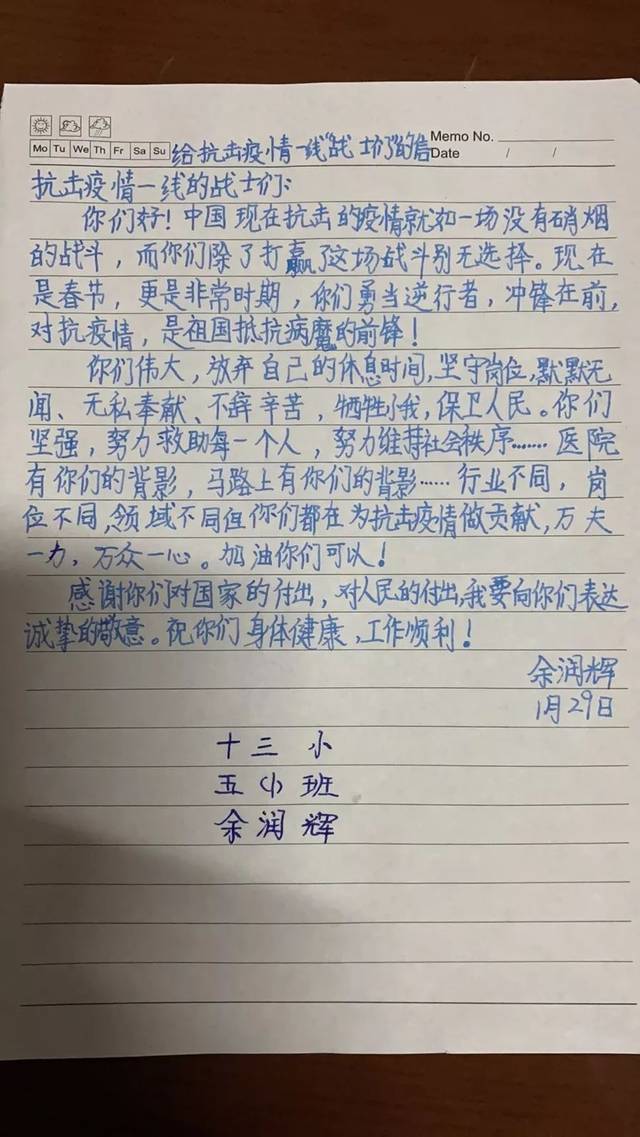 Mo Tu We Th Fr Sa Su
Memo No.
Date / /
给抗击疫情一线"战士们"的信
抗击疫情一线的战士们:
你们好！中国现在抗击的疫情就如一场没有硝烟
的战斗，而你们除了打赢了这场战斗别无选择。现在
是春节，更是非常时期，你们勇当逆行者，冲锋在前，
对抗疫情，是祖国抵抗病魔的前锋！
你们伟大，放弃自己的休息时间，坚守岗位，默默无
闻、无私奉献、不辞辛苦，牺牲小我，保卫人民。你们
坚强，努力救助每一个人，努力维持社会秩序……医院
有你们的背影，马路上有你们的背影……行业不同，岗
位不同，领域不同但你们都在为抗击疫情做贡献，万夫
一力，万众一心。加油你们可以！
感谢你们对国家的付出，对人民的付出，我要向你们表达
诚挚的敬意。祝你们身体健康，工作顺利！
余润辉
1月29日
十三小
五(1)班
余润辉